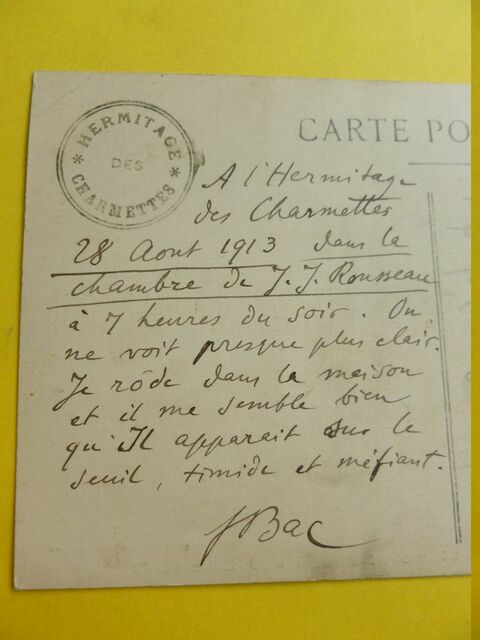 HERMITAGE
DES
CHARMETTES
CARTE PO
A l'Hermitage
des Charmettes
28 Aout 1913 dans la
chambre de J. J. Rousseau
à 7 heures du soir. On
ne voit presque plus clair.
Je rôde dans la maison
et il me semble bien
qu'Il apparait sur le
seuil, timide et méfiant.
FBac